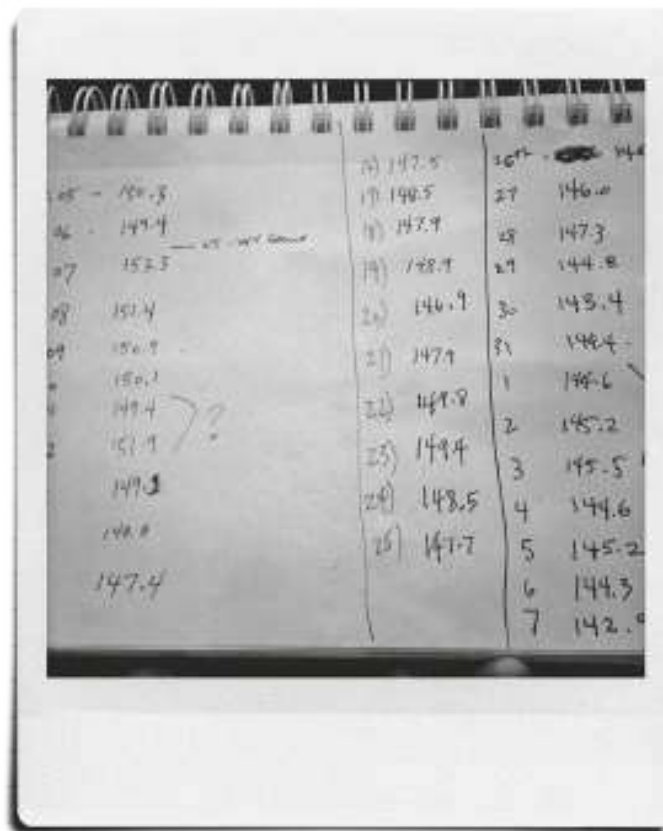 05 - 150.3
06 - 149.4
07 153.3
08 151.4
09 150.9
150.1
149.4
151.9 ?
149.3
148.0
147.4
16) 147.5
17) 148.5
18) 147.9
19) 148.9
20) 146.9
21) 147.9
22) 149.8
23) 149.4
24) 148.5
25) 147.7
26th -
27 146.0
28 147.3
29 144.8
30 143.4
31 144.4
1 144.6
2 145.2
3 145.5
4 144.6
5 145.2
6 144.3
7 142.9